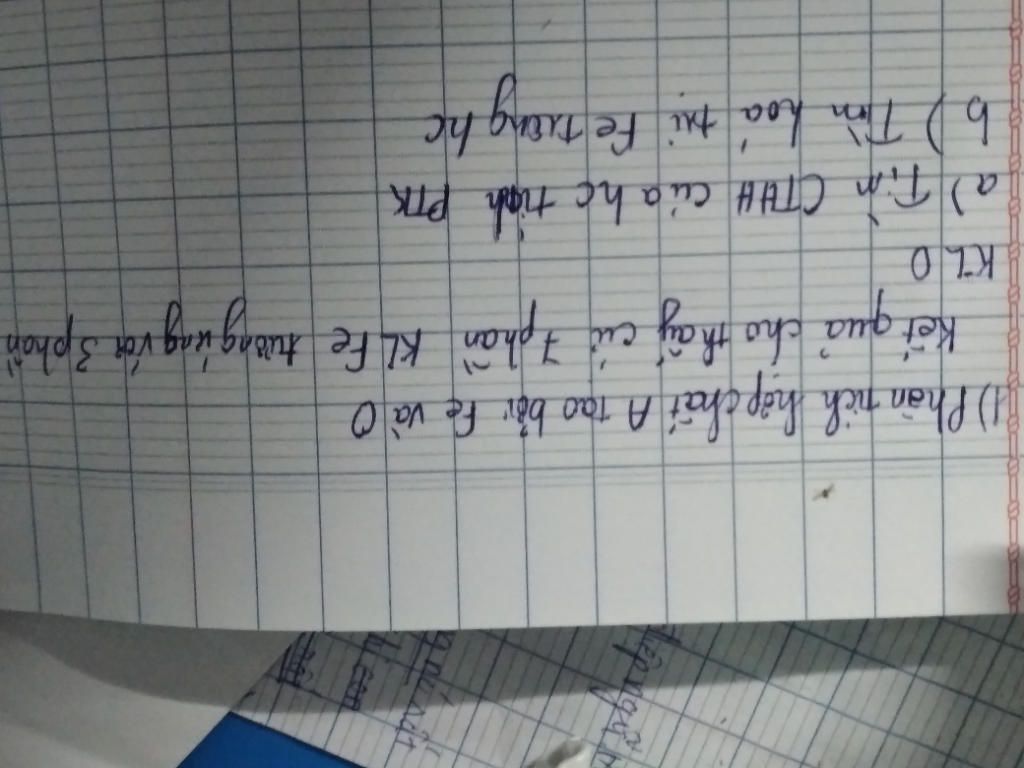 1) Phân tích hợp chất A tạo bởi Fe và O
Kết quả cho thấy cứ 7 phần KL Fe tương ứng với 3 phần
KL O
a) Tìm CTHH của hc tính PTK
b) Tìm hoá trị Fe trong hc